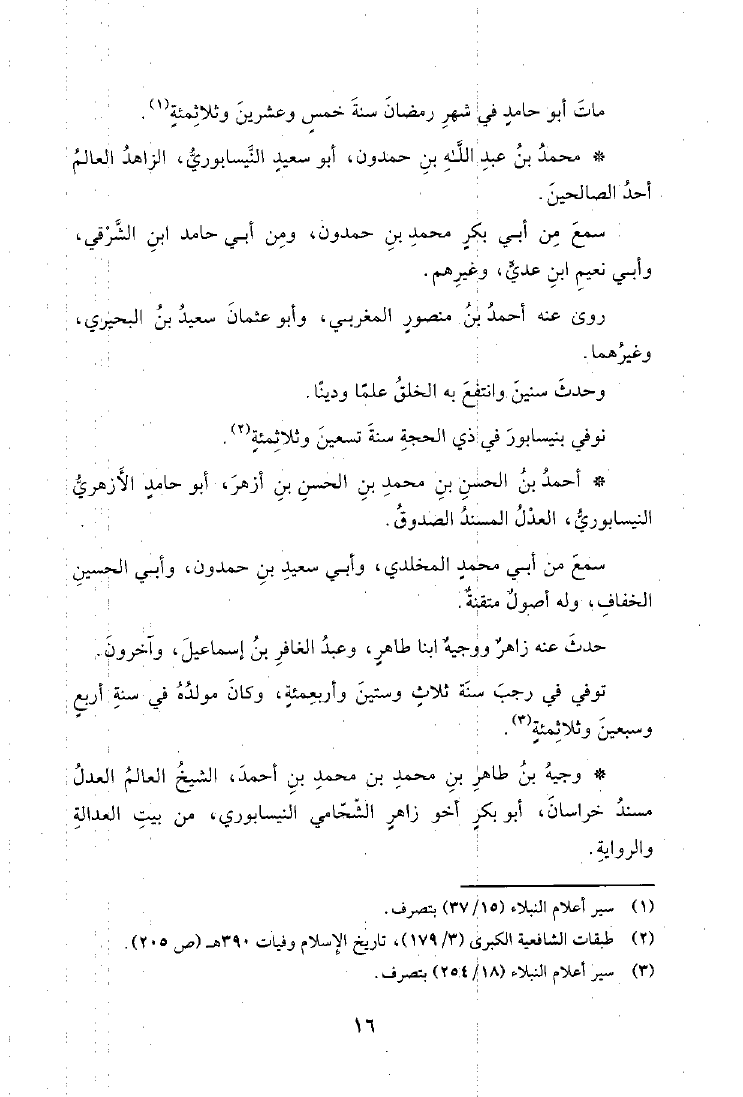 ماتَ أبو حامدٍ في شهرِ رمضانَ سنةَ خمسٍ وعشرينَ وثلاثِمئةٍ(١).
* محمدُ بنُ عبدِ اللَّهِ بنِ حمدون، أبو سعيدٍ النَّيسابوريُّ، الزاهدُ العالمُ
أحدُ الصالحينَ.
سمعَ مِن أبي بكرٍ محمدِ بنِ حمدون، ومِن أبي حامد ابنِ الشَّرْقي،
وأبي نعيمِ ابنِ عديٍّ، وغيرِهم.
روى عنه أحمدُ بنُ منصورٍ المغربي، وأبو عثمانَ سعيدُ بنُ البحيري،
وغيرُهما.
وحدثَ سنينَ وانتفعَ به الخلقُ علمًا ودينًا.
توفي بنيسابورَ في ذي الحجةِ سنةَ تسعينَ وثلاثِمئةٍ(٢).
* أحمدُ بنُ الحسنِ بنِ محمدِ بنِ الحسنِ بنِ أزهرَ، أبو حامدٍ الأَزهريُّ
النيسابوريُّ، العدْلُ المسندُ الصدوقُ.
سمعَ من أبي محمدٍ المخلدي، وأبي سعيدِ بنِ حمدون، وأبي الحسينِ
الخفافِ، وله أصولٌ متقنةٌ.
حدثَ عنه زاهرٌ ووجيهٌ ابنا طاهرٍ، وعبدُ الغافرِ بنُ إسماعيلَ، وآخرونَ.
توفي في رجبَ سنَة ثلاثٍ وستينَ وأربعِمئةٍ، وكانَ مولدُهُ في سنةِ أربعٍ
وسبعينَ وثلاثِمئةٍ(٣).
* وجيهُ بنُ طاهرِ بنِ محمدِ بن محمدِ بنِ أحمدَ، الشيخُ العالمُ العدلُ
مسندُ خراسانَ، أبو بكرٍ أخو زاهرٍ الشّحّامي النيسابوري، من بيتِ العدالةِ
والروايةِ.
(١) سير أعلام النبلاء (٣٧/١٥) بتصرف.
(٢) طبقات الشافعية الكبرى (١٧٩/٣)، تاريخ الإسلام وفيات ٣٩٠هـ (ص ٢٠٥).
(٣) سير أعلام النبلاء (٢٥٤/١٨) بتصرف.
١٦